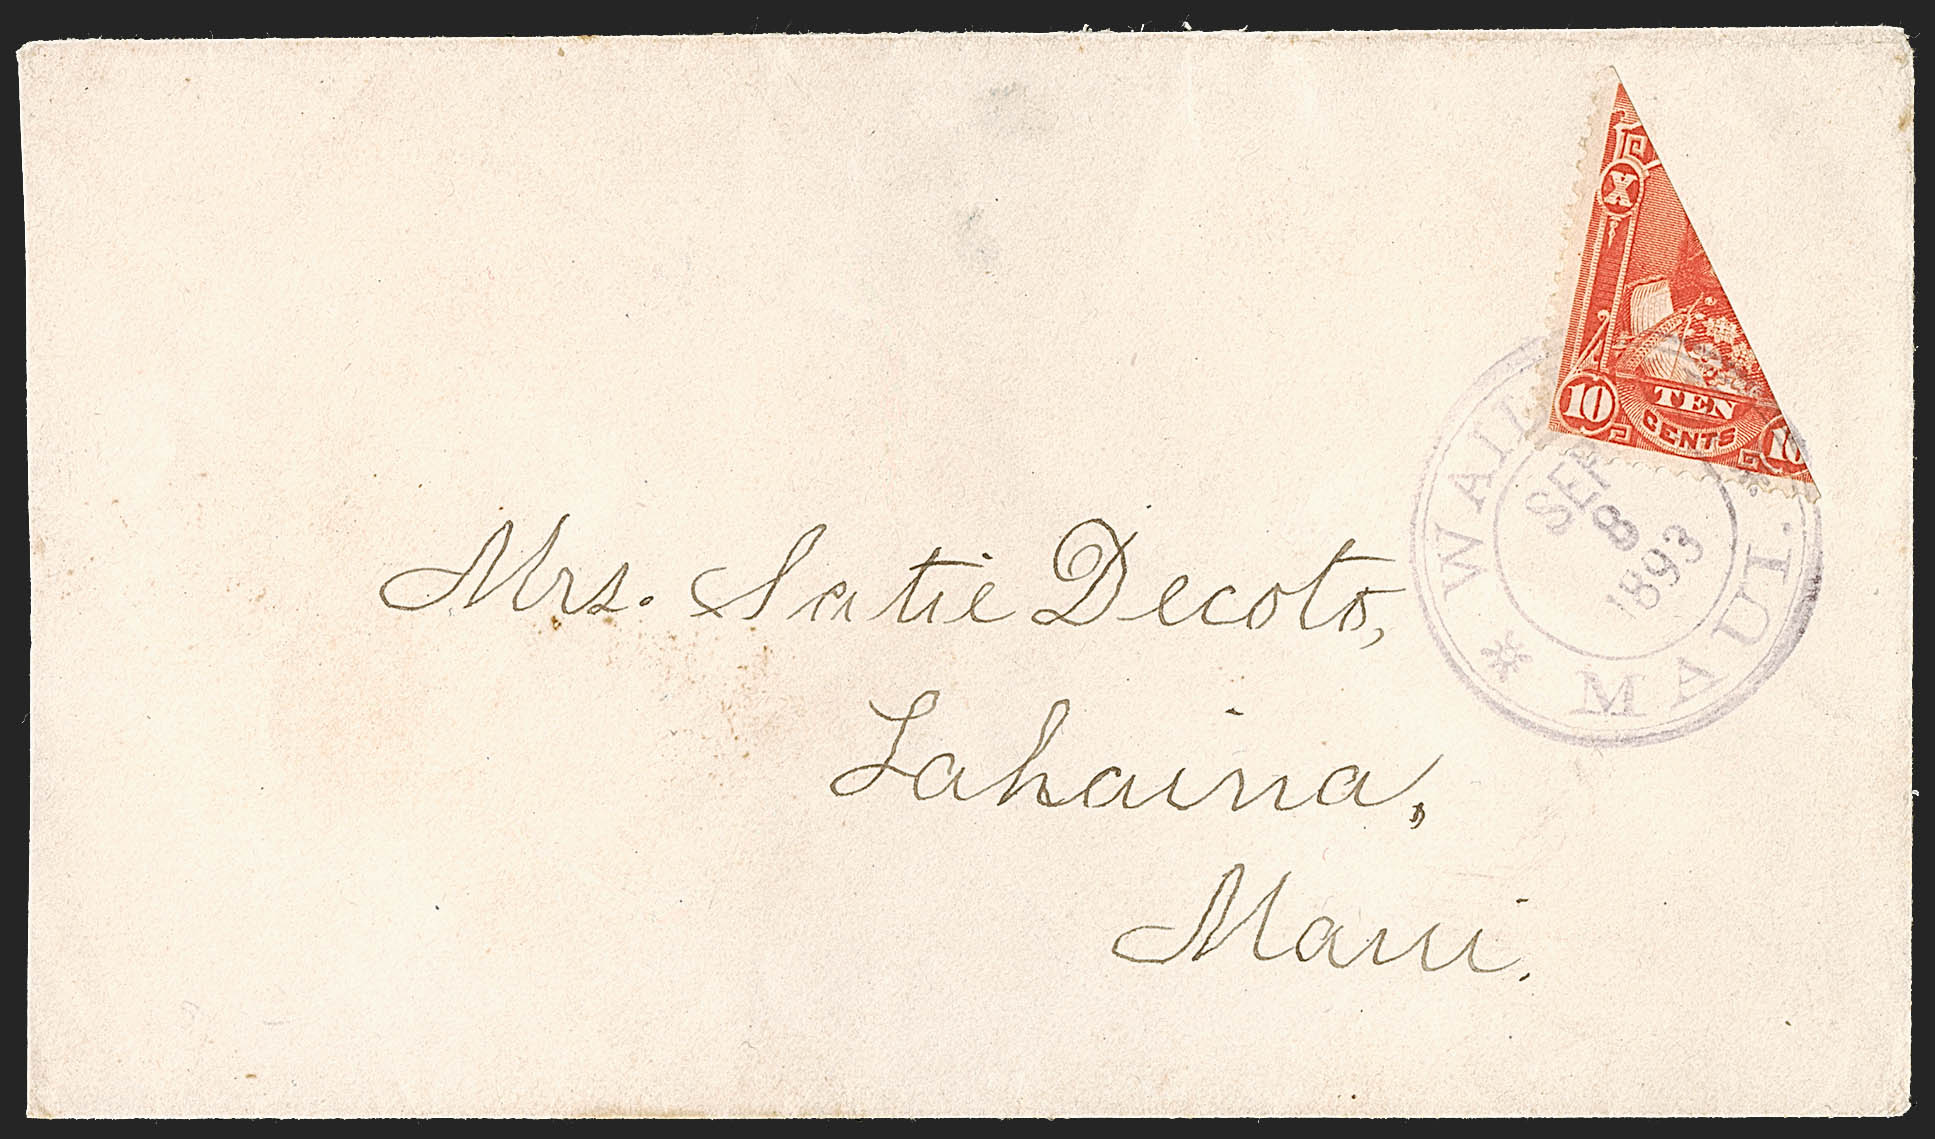 X
10 TEN CENTS 10
MAUI.
SEP
8
1893
Mrs. Satie Decoto,
Lahaina,
Maui.